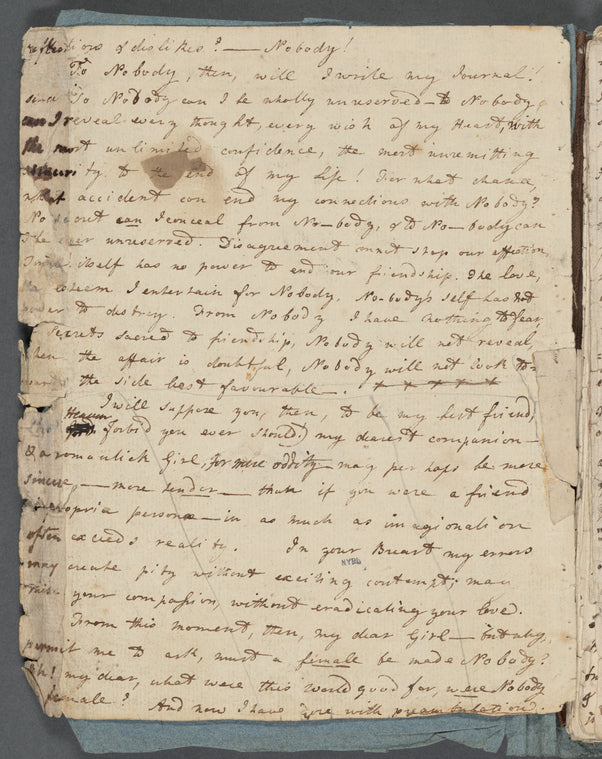 reflections of dislikes? — Nobody!
To Nobody, then, will I write my Journal!
since To Nobody can I be wholly unreserved — to Nobody
can I reveal every thought, every wish of my Heart, with
the most unlimited confidence, the most unremitting
sincerity to the end of my Life! For what chance,
what accident can end my connections with Nobody?
No secret can I conceal from No-body, & to No-body can
I be ever unreserved. Disagreement cannot stop our affection,
Time itself has no power to end our friendship. The love,
the esteem I entertain for Nobody, No-body's self has not
power to destroy. From Nobody I have nothing to fear,
secrets sacred to friendship, Nobody will not reveal
when the affair is doubtful, Nobody will not look
the side least favourable.
I will suppose you, then, to be my best friend,
Heaven forbid you ever should! my dearest companion —
& a romantick Girl, for mere oddity may perhaps be more
sincere — more tender — than if you were a friend
propria personæ — in as much as imagionation
often exceeds reality. In your Breast my errors
may create pity without exciting contempt; may
raise your compassion, without eradicating your love.
From this moment, then, my dear Girl — but why,
permit me to ask, must a female be made Nobody?
Ah! my dear, what were this world good for, were Nobody
female? And now I have done with preambulation.
NYPL